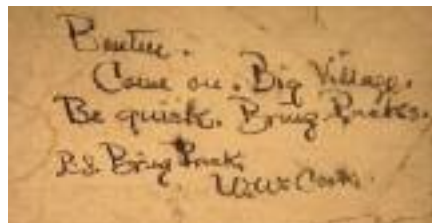 Benteen.
Come on. Big Village.
Be quick. Bring Packs.
P.S. Bring Packs.
W.W. Cooke